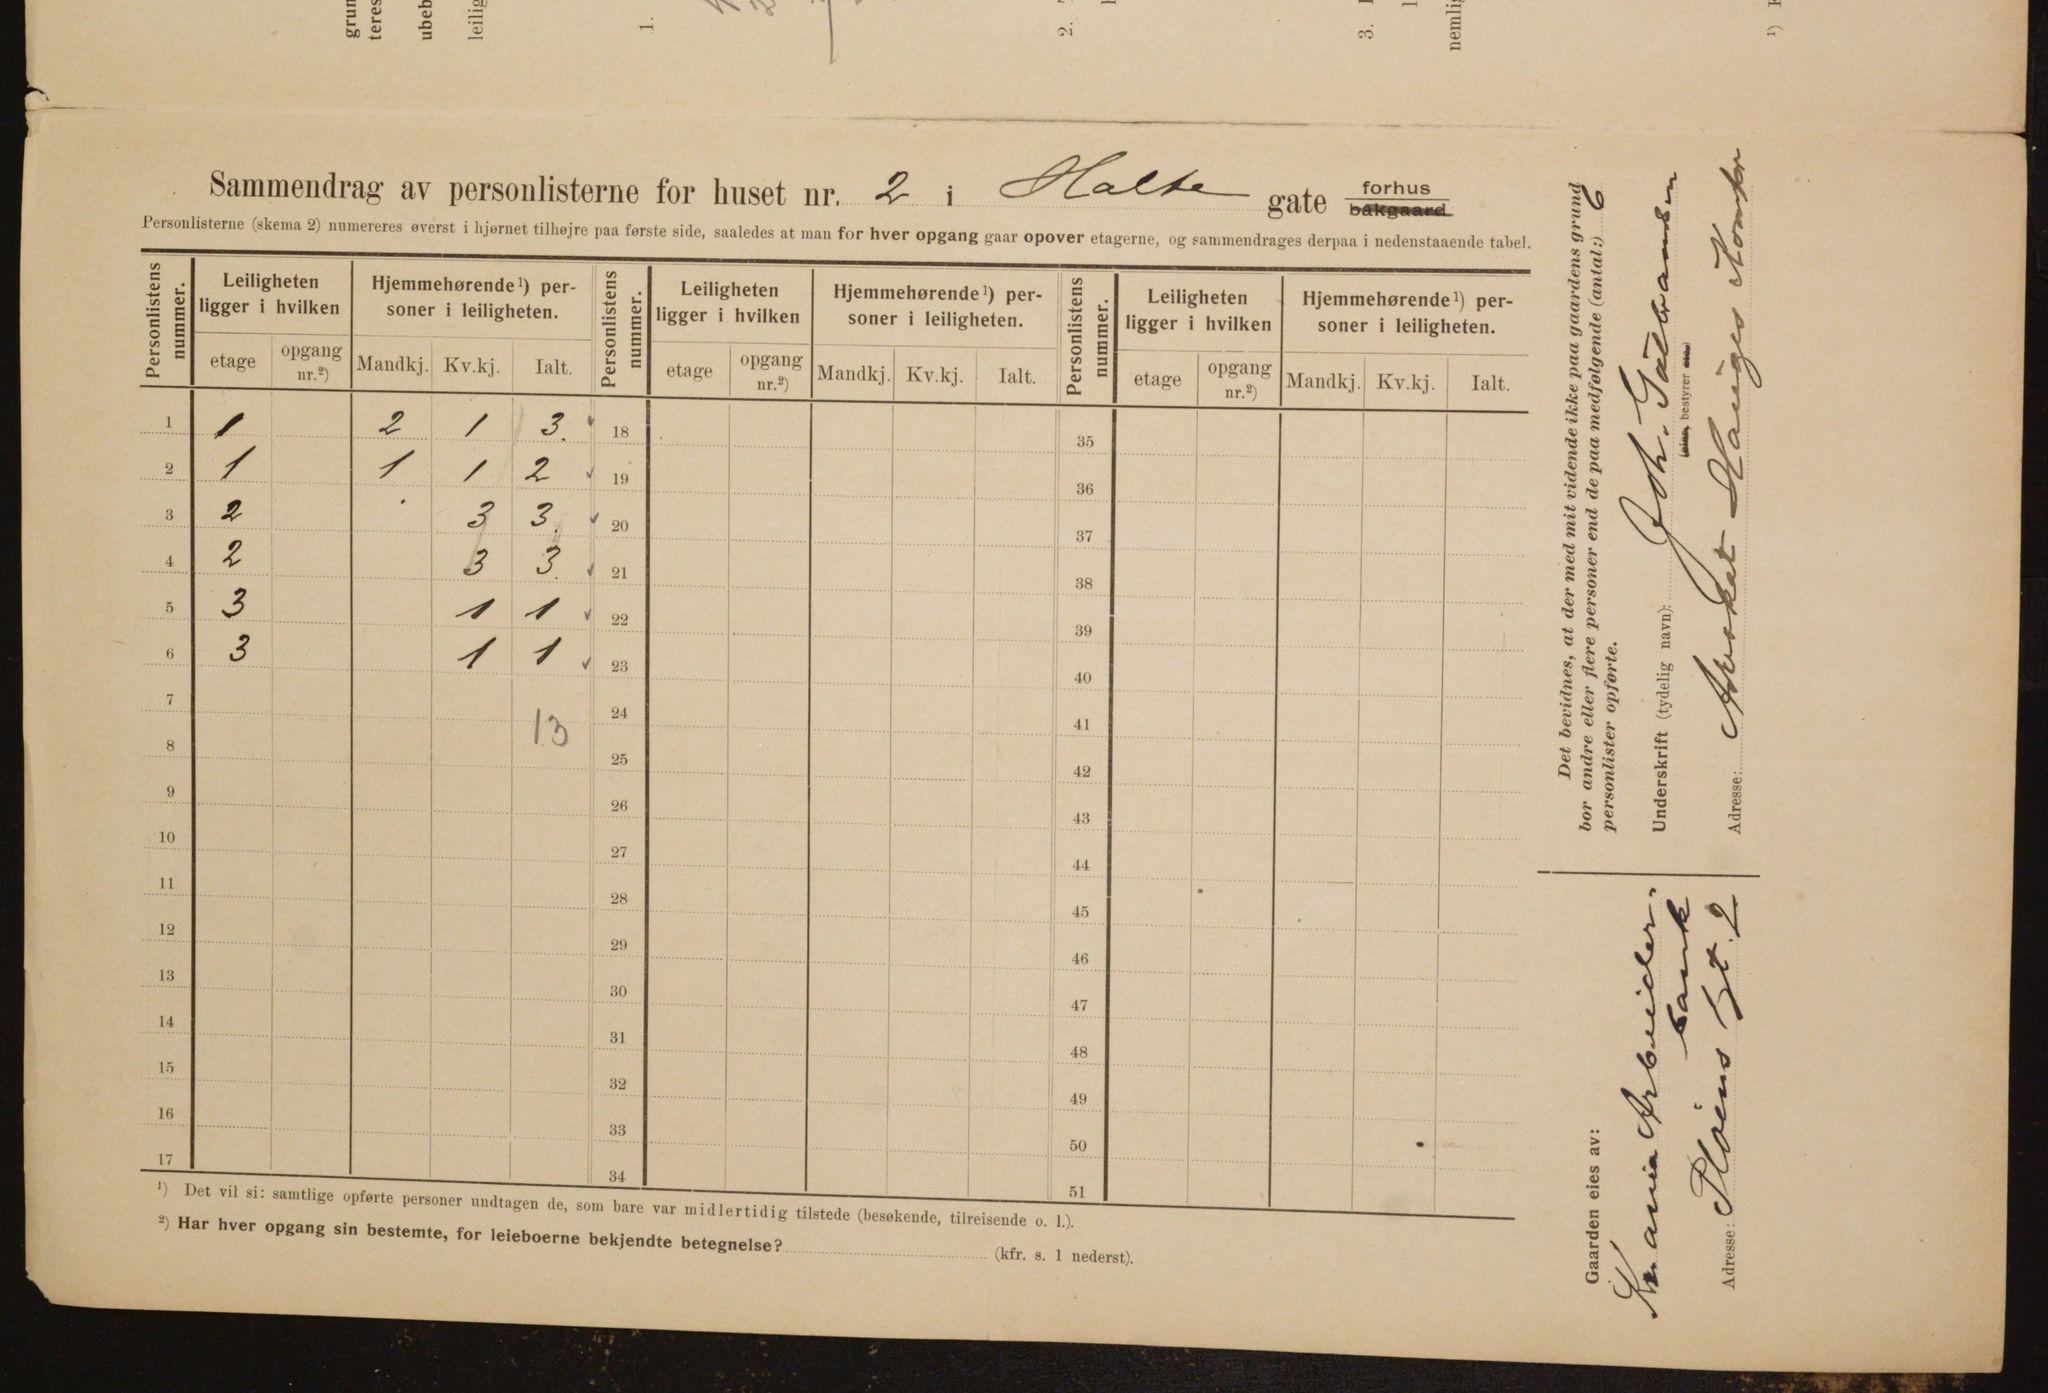 grun
teres
ubeb
leilig
1.
2.
3.
nemlig
1)
Sammendrag av personlisterne for huset nr. 2 i Halte gate forhus
bakgaard
Personlisterne (skema 2) numereres øverst i hjørnet tilhøjre paa første side, saaledes at man for hver opgang gaar opover etagerne, og sammendrages derpaa i nedenstaaende tabel.
Personlistens nummer. Leiligheten ligger i hvilken Hjemmehørende 1) personer i leiligheten. Personlistens nummer. Leiligheten ligger i hvilken Hjemmehørende 1) personer i leiligheten. Personlistens nummer. Leiligheten ligger i hvilken Hjemmehørende 1) personer i leiligheten.
etage opgang nr.2) Mandkj. Kv.kj. Ialt. etage opgang nr.2) Mandkj. Kv.kj. Ialt. etage opgang nr.2) Mandkj. Kv.kj. Ialt.
1 1 2 1 3. 18 35
2 1 1 1 2 19 36
3 2 3 3. 20 37
4 2 3 3. 21 38
5 3 1 1 22 39
6 3 1 1 23 40
7 13 24 41
8 25 42
9 26 43
10 27 44
11 28 45
12 29 46
13 30 47
14 31 48
15 32 49
16 33 50
17 34 51
1) Det vil si: samtlige opførte personer undtagen de, som bare var midlertidig tilstede (besøkende, tilreisende o. l.).
2) Har hver opgang sin bestemte, for leieboerne bekjendte betegnelse? (kfr. s. 1 nederst).
Det bevidnes, at der med mit vidende ikke paa gaardens grund
bor andre eller flere personer end de paa medfølgende (antal:) 6
personlister opførte.
Underskrift (tydelig navn): Joh.
bestyrer
Adresse: Advokat Hauges Kontor
Gaarden eies av:
Kr.ania Arbeider-
bank
Adresse: Pløens Gt. 2